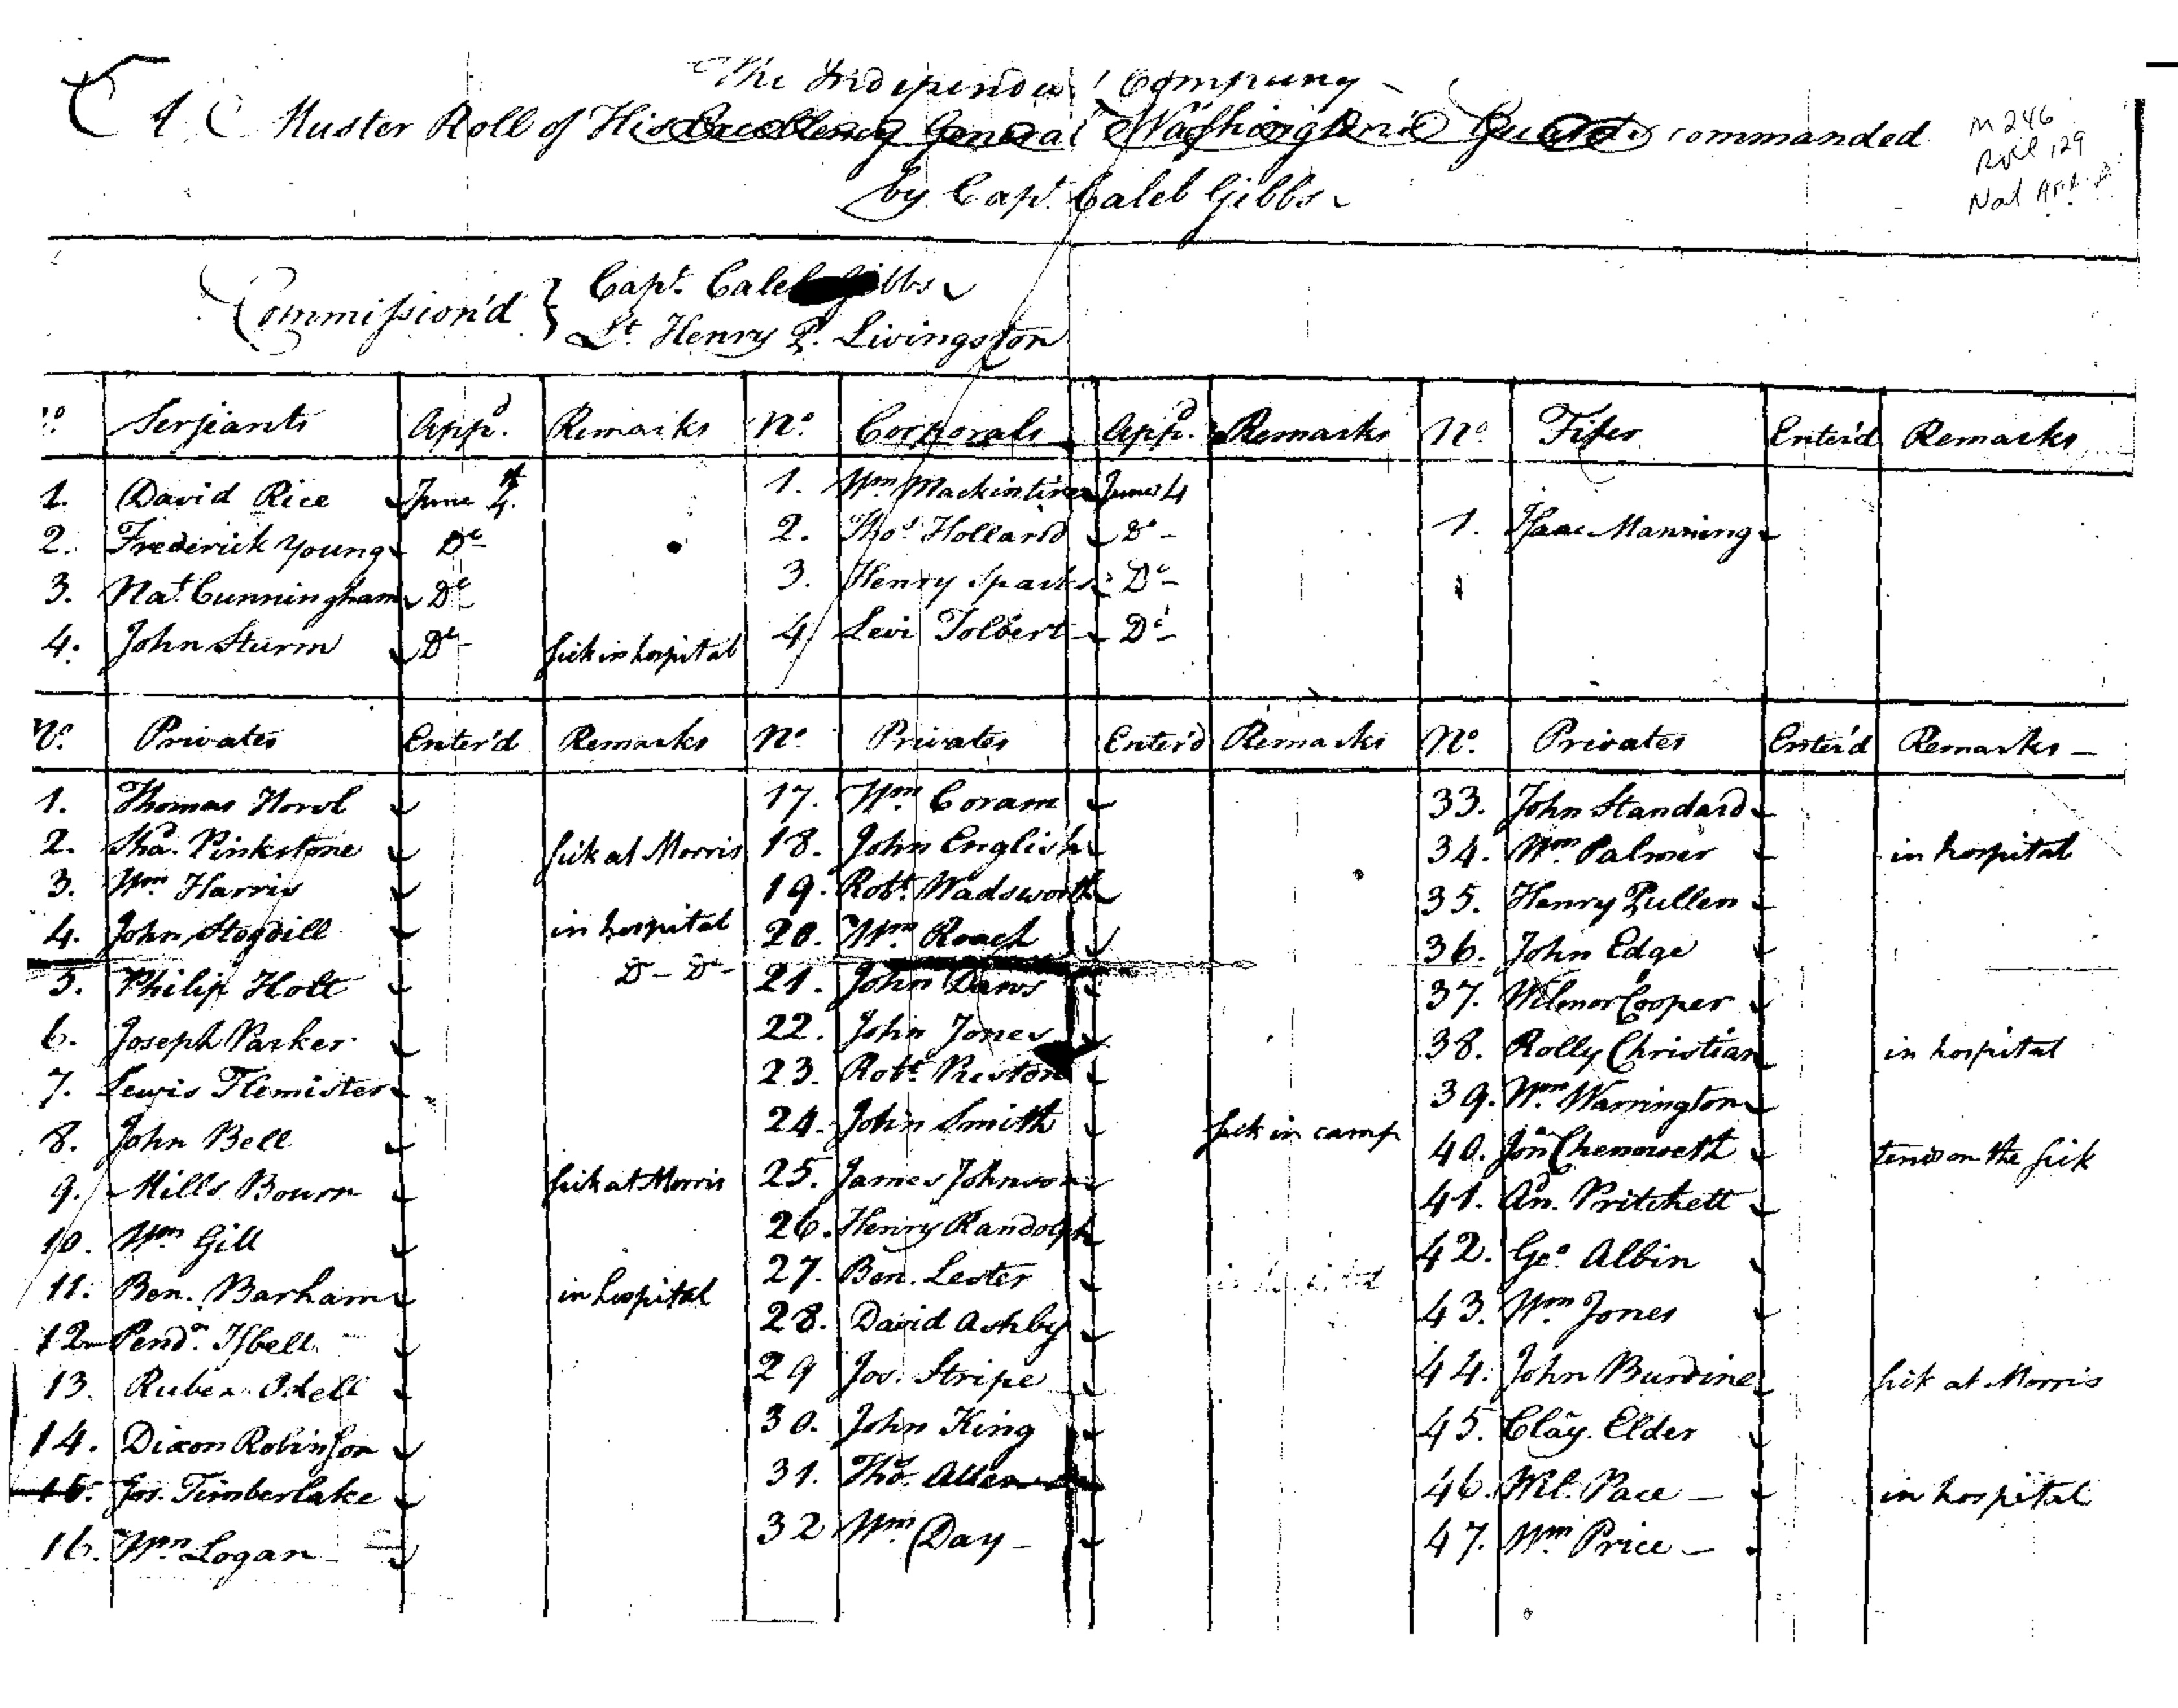 The Independent Company
A Muster Roll of His Excellency General Washington's Guards commanded
by Capt. Caleb Gibbs
M246
Roll 129
Nat Arch
Commission'd } Capt. Caleb Gibbs
Lt. Henry P. Livingston
No. Serjeants Appd. Remarks No. Corporals Appd. Remarks No. Fifer Enter'd Remarks
1. David Rice June 4th 1. Wm Mackintire June 4
2. Frederick Young Do 2. Thos. Holland Do 1. Isaac Manning
3. Nat. Cunningham Do 3. Henry Sparks Do
4. John Sturm Do sick in hospital 4 Levi Tolbert Do
No. Privates Enter'd Remarks No. Privates Enter'd Remarks No. Privates Enter'd Remarks
1. Thomas Horol 17. Wm. Coram 33. John Standard
2. Tho. Pinkstone sick at Morris 18. John English 34. Wm. Palmer in hospital
3. Wm. Harris 19. Robt. Wadsworth 35. Henry Pullen
4. John Stogdill in hospital 20. Wm. Roach 36. John Edge
5. Philip Holt Do Do 21. John Daws 37. Wilmor Cooper
6. Joseph Parker 22. John Jones 38. Rolly Christian in hospital
7. Lewis Flemister 23. Robt. Preston 39. Wm. Warrington
8. John Bell 24. John Smith sick in camp 40. Jon Chenoweth tends on the sick
9. Mills Bourn sick at Morris 25. James Johnson 41. An. Pritchett
10. Wm. Gill 26. Henry Randolph 42. Geo. Albin
11. Ben. Barham in hospital 27. Ben. Lester in hospital 43. Wm. Jones
12 Pendn. Isbell 28. David Ashby 44. John Burdine sick at Morris
13. Ruben Odell 29 Jos. Stripe 45. Clay. Elder
14. Dixon Robinson 30. John King 46. Wil. Pace in hospital
15. Jos. Timberlake 31. Tho. Allen 47. Wm. Price
16. Wm. Logan 32 Wm. Day